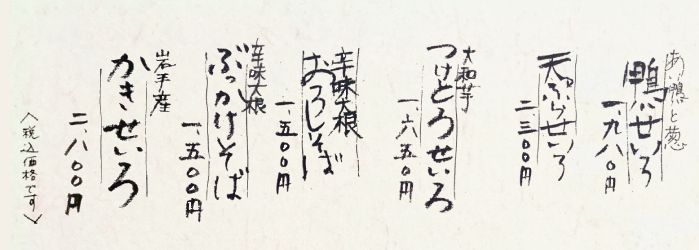 あい鴨と葱
鴨せいろ
一、九八〇円
天ぷらせいろ
二、三〇〇円
大和芋
つけとろせいろ
一、六五〇円
辛味大根
おろしそば
一、五〇〇円
辛味大根
ぶっかけそば
一、五〇〇円
岩手産
かきせいろ
二、八〇〇円
〈税込価格です〉